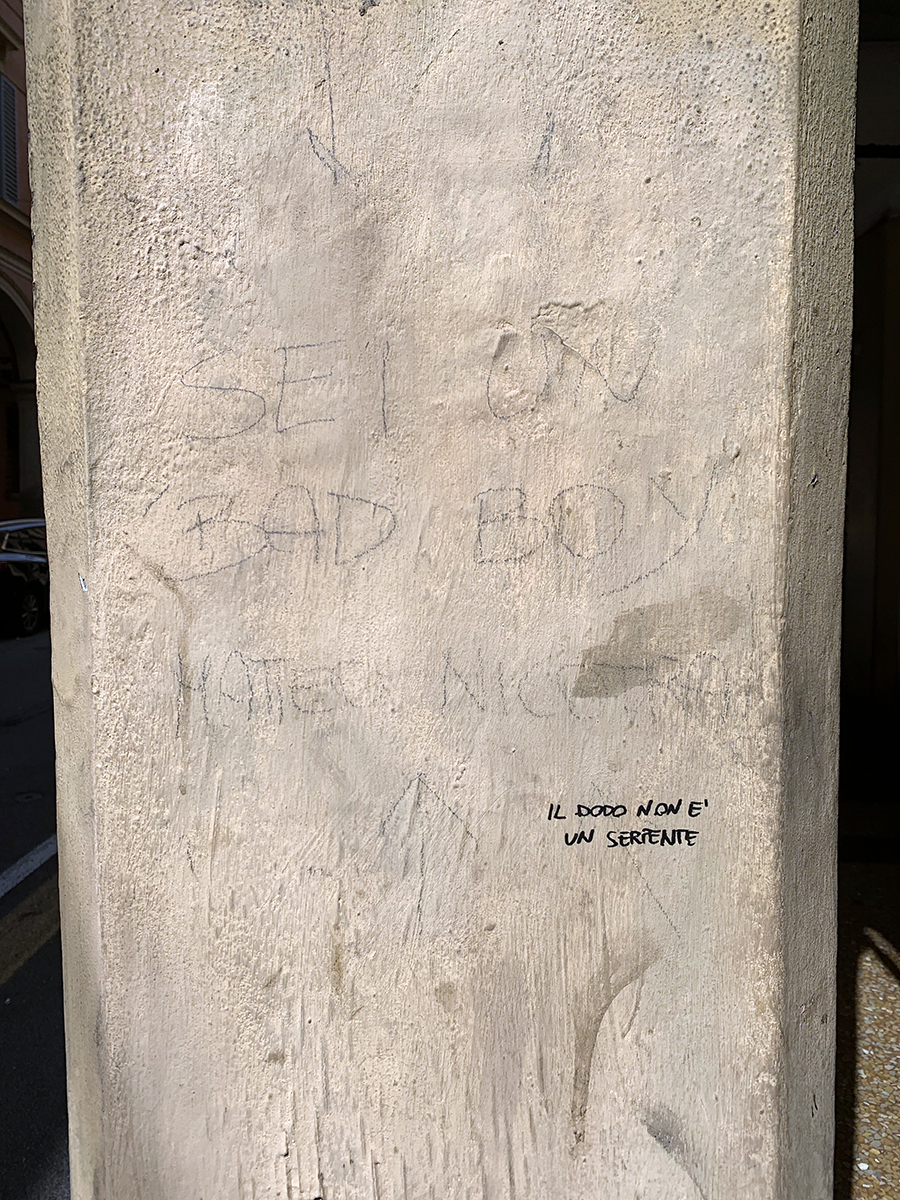 SEI UN
BAD BOY
MATTEO
IL DODO NON E'
UN SERPENTE